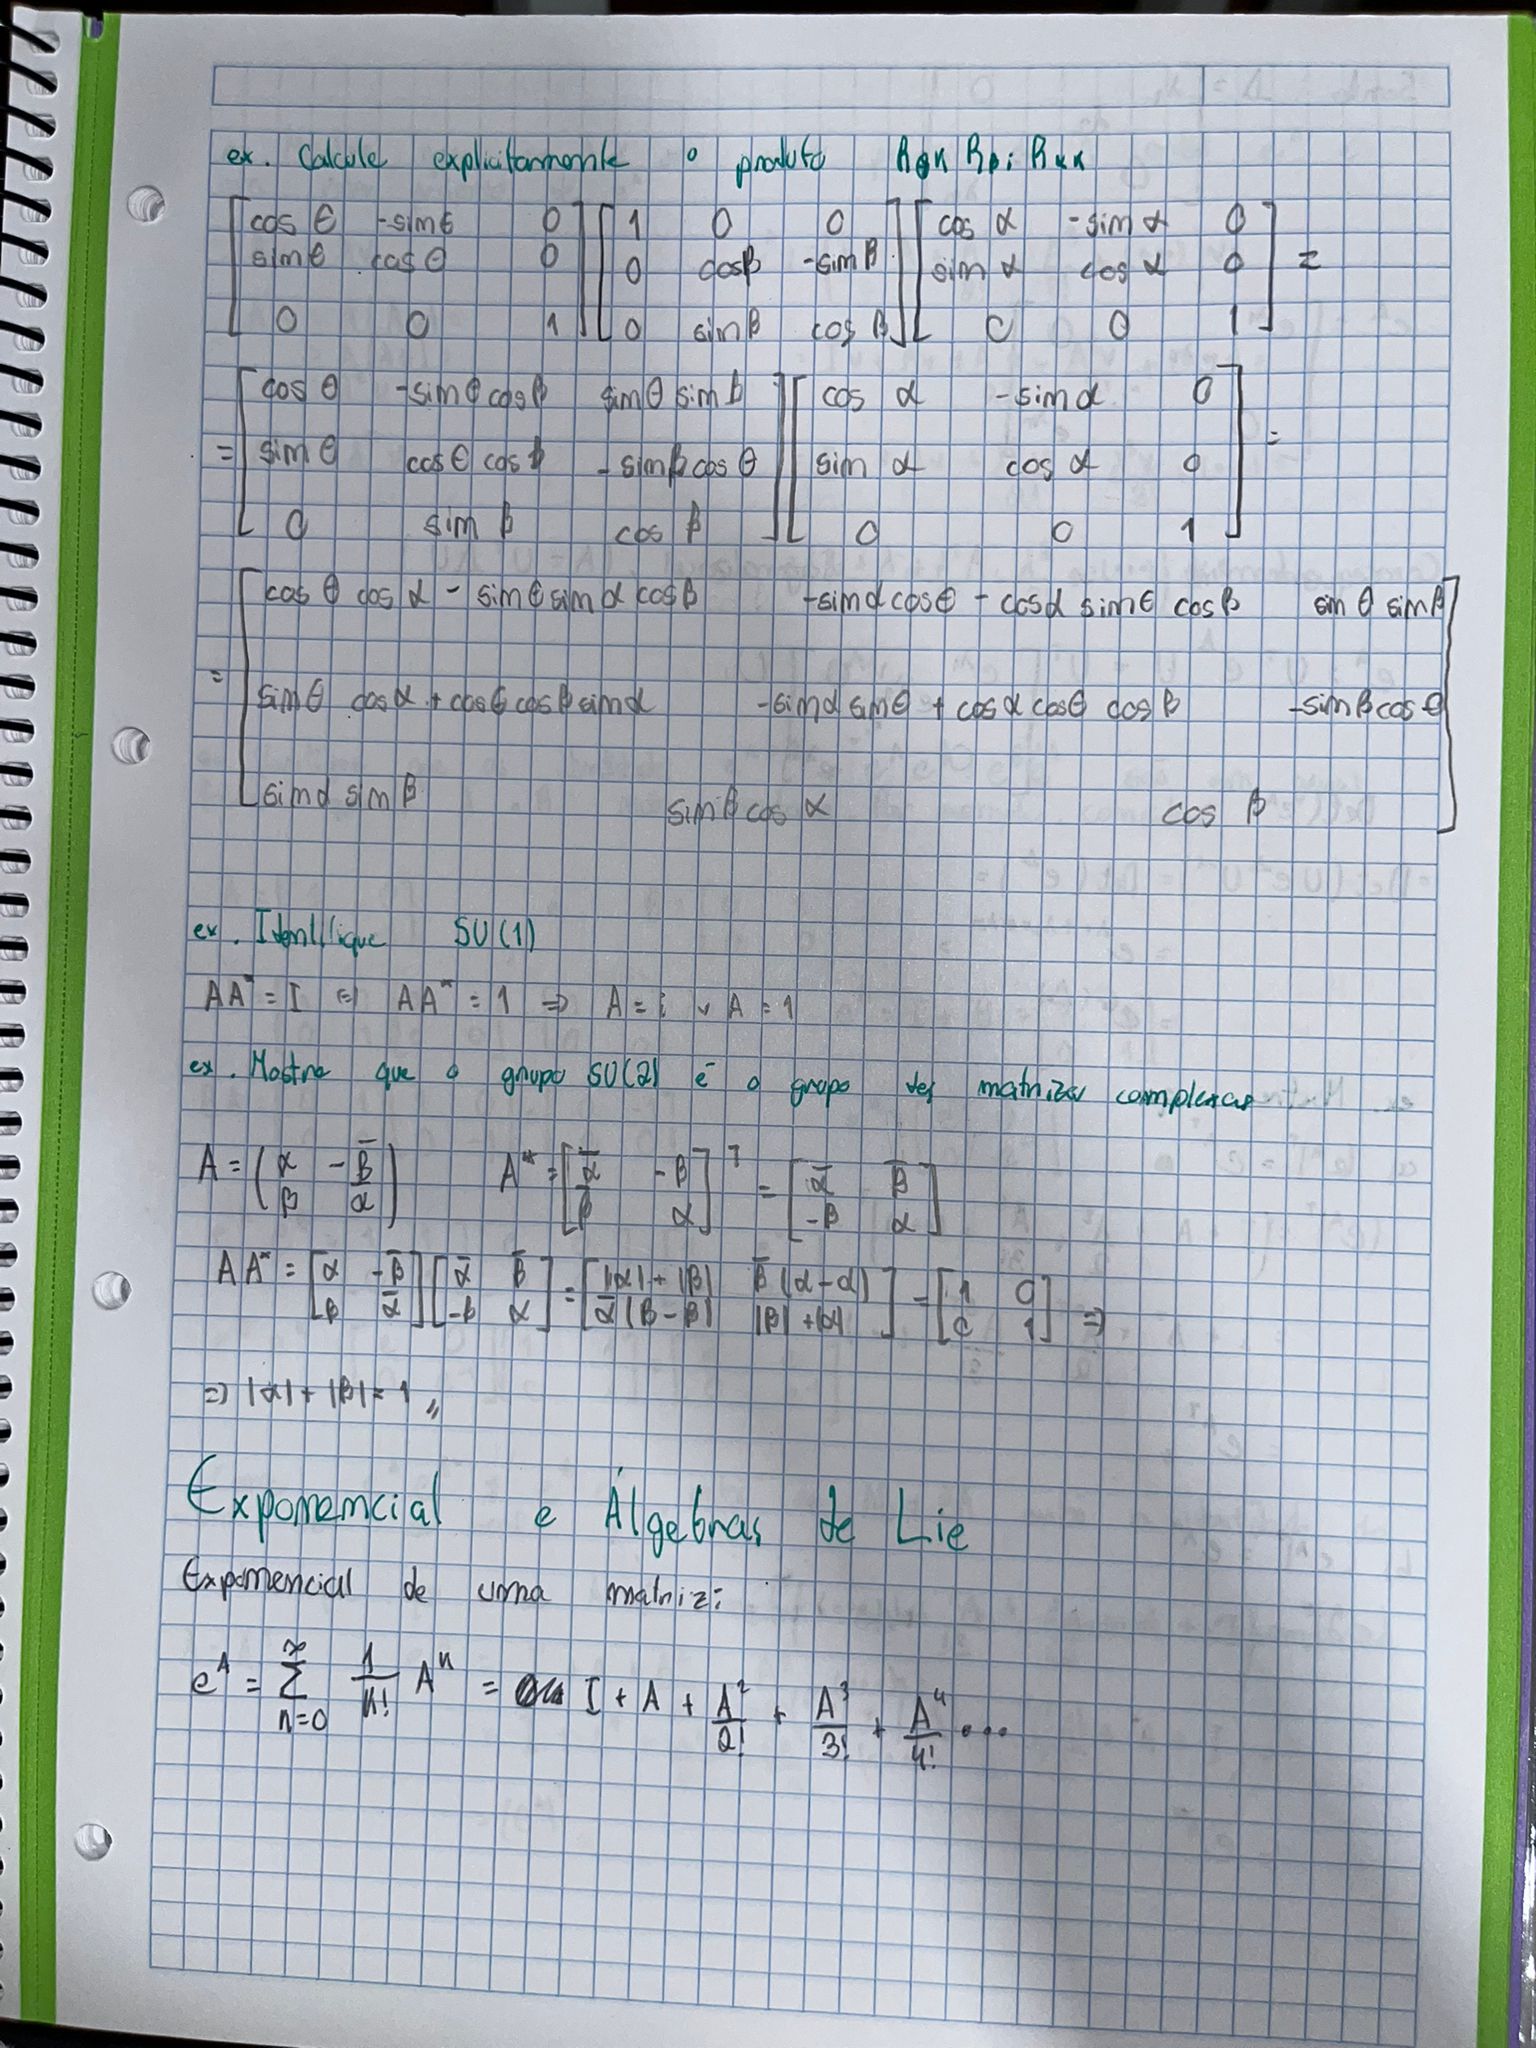 ex. Calcule explicitamente o produto Rθk Rβi Rαk
[cos θ -sin θ 0] [1 0 0] [cos α -sin α 0]
[sin θ cos θ 0] [0 cosβ -sin β] [sin α cos α 0] =
[0 0 1] [0 sinβ cos β] [0 0 1]
[cos θ -sin θ cosβ sinθ sin β] [cos α -sin α 0]
= [sin θ cos θ cos β -sinβ cos θ] [sin α cos α 0] =
[0 sin β cos β] [0 0 1]
[cos θ cos α - sin θ sin α cosβ -sinα cosθ - cosα sin θ cos β sin θ sin β]
= [sinθ cosα + cosθ cosβ sinα -sinα sinθ + cosα cosθ cos β -sinβ cos θ]
[sinα sin β sinβ cos α cos β]
ex. Identifique SU(1)
AA* = I ⇔ AA* = 1 ⇒ A = i ∨ A = 1
ex. Mostre que o grupo SU(2) é o grupo des matrizes complexas
A = (α -β̄; β ᾱ) A* = [ᾱ -β; β̄ α]ᵀ = [ᾱ β̄; -β α]
AA* = [α -β̄; β ᾱ][ᾱ β̄; -β α] = [|α|+|β| β̄(α-α); ᾱ(β-β) |β|+|α|] = [1 0; 0 1] ⇒
⇒ |α| + |β| = 1 ,,
Exponencial e Álgebras de Lie
Exponencial de uma matriz:
e^A = ∑_{n=0}^{∞} 1/n! Aⁿ = I + A + A²/2! + A³/3! + A⁴/4! ...